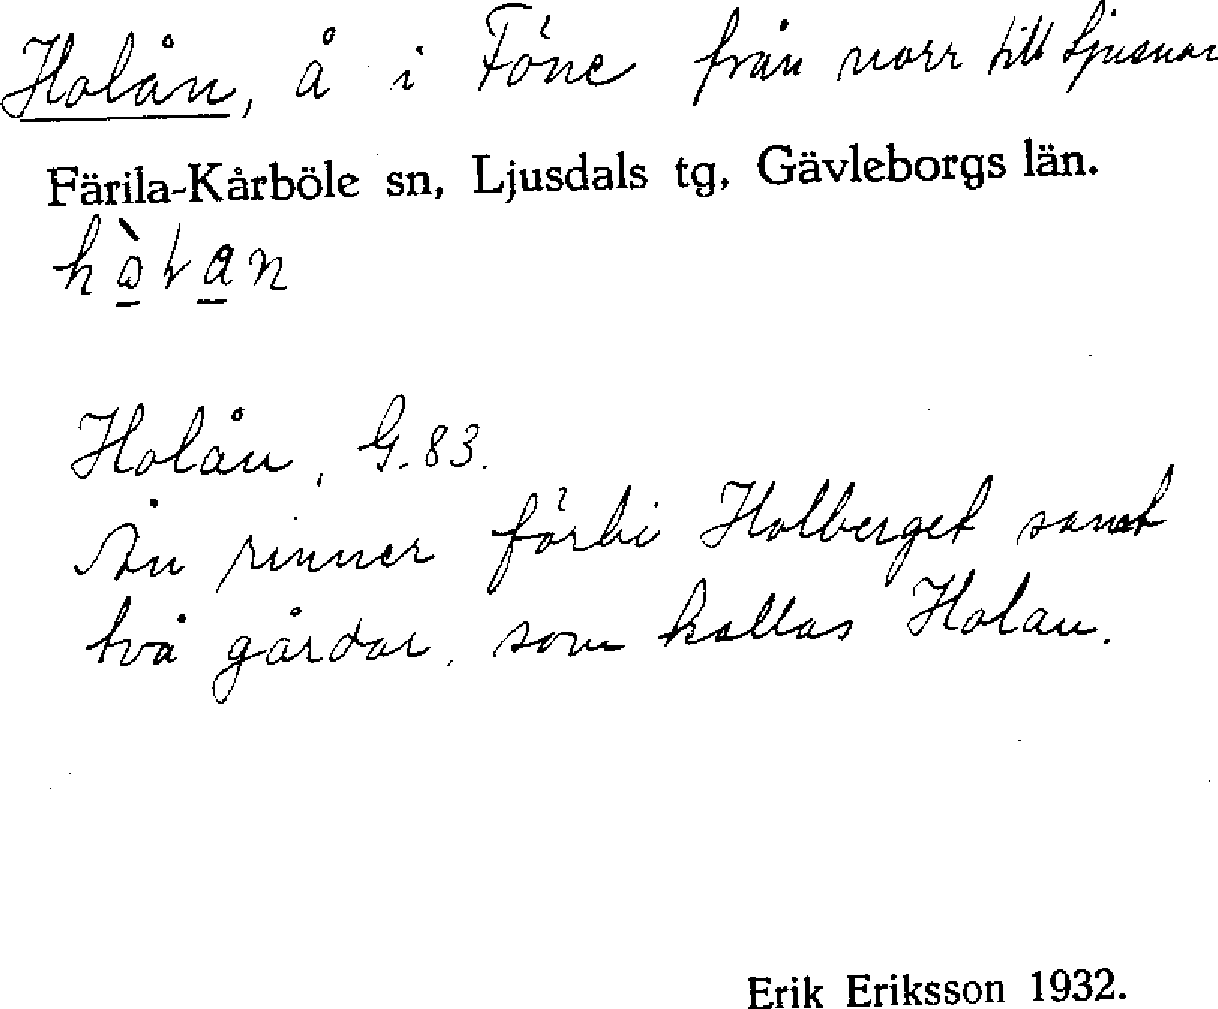 Holån, å i Föne från norr till Ljusnan
Färila-Kårböle sn, Ljusdals tg, Gävleborgs län.
Holån, G. 83.
Ån rinner förbi Holberget samt
två gårdar, som kallas Holan.
Erik Eriksson 1932.